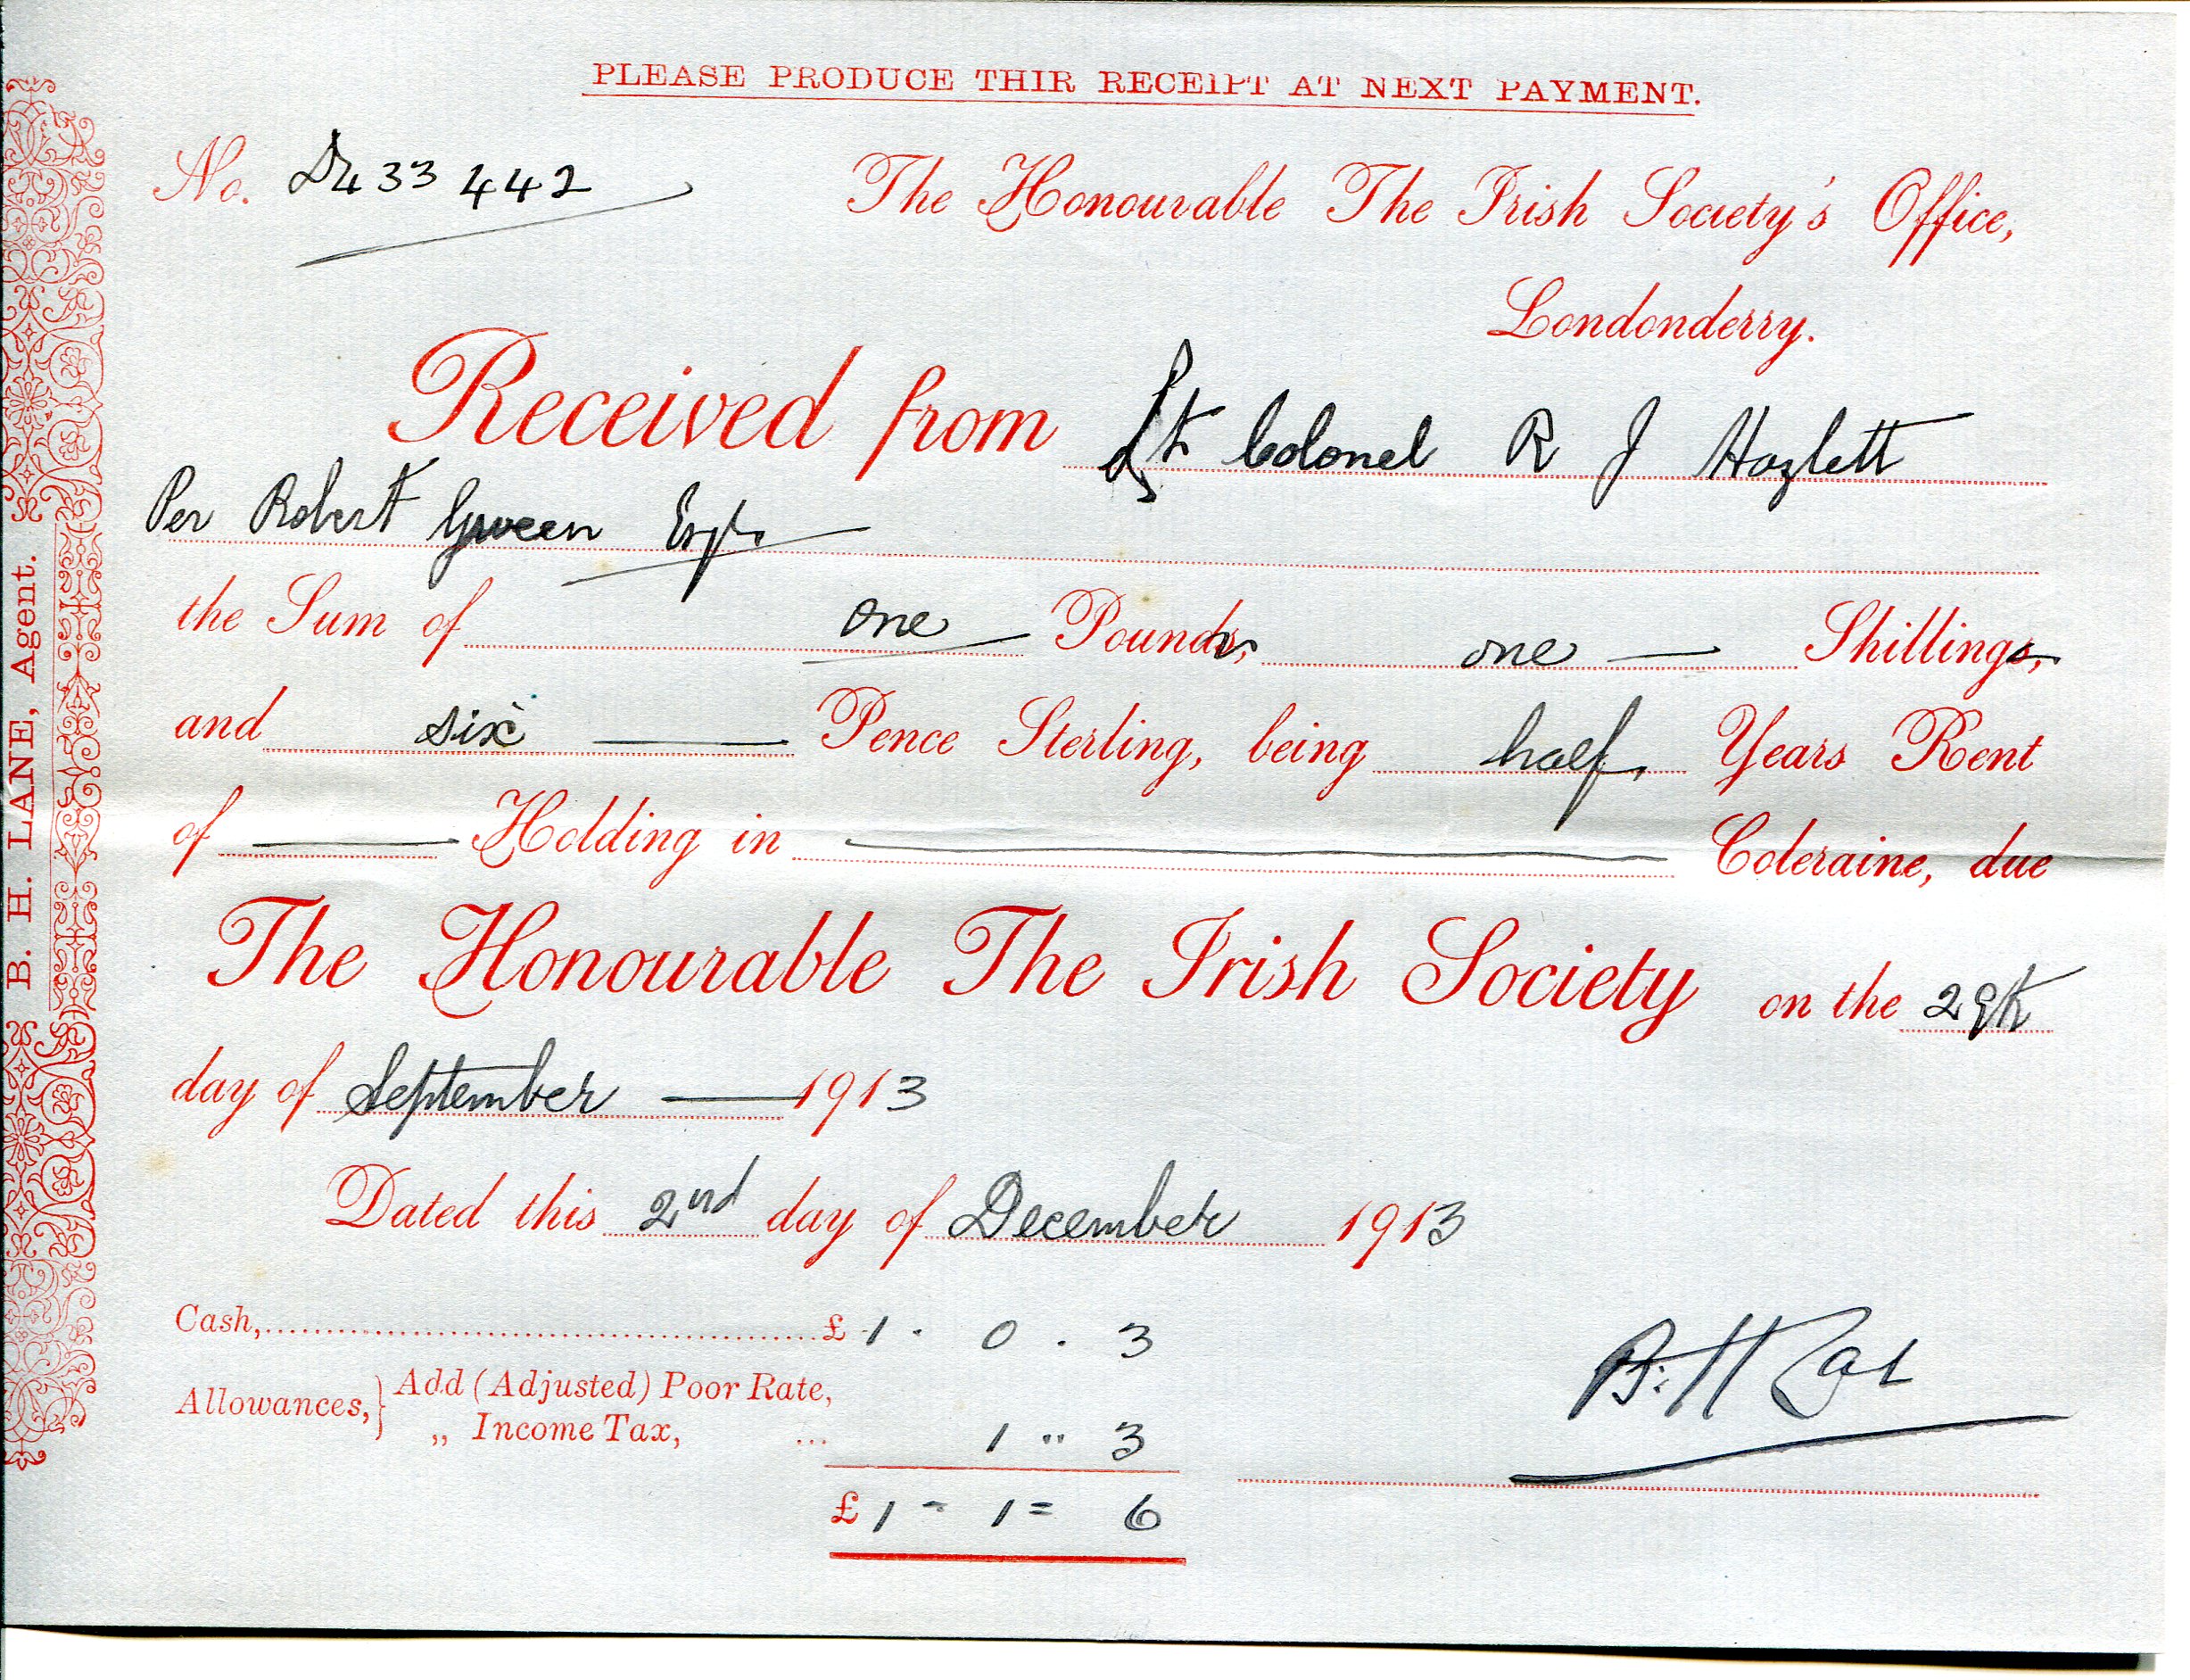 PLEASE PRODUCE THIR RECEIPT AT NEXT PAYMENT.
No. 33 442
The Honourable The Irish Society's Office,
Londonderry.
Received from Lt Colonel R J Hazlett
Per Robert Green Esqr
the Sum of one Pounds, one Shillings,
and six Pence Sterling, being half Years Rent
of Holding in Coleraine, due
The Honourable The Irish Society on the 29th
day of September 1913
Dated this 2nd day of December 1913
Cash, £ 1 . 0 . 3
Allowances, } Add (Adjusted) Poor Rate,
„ Income Tax, ... 1 " 3
£ 1 - 1 = 6
B. H. LANE, Agent.